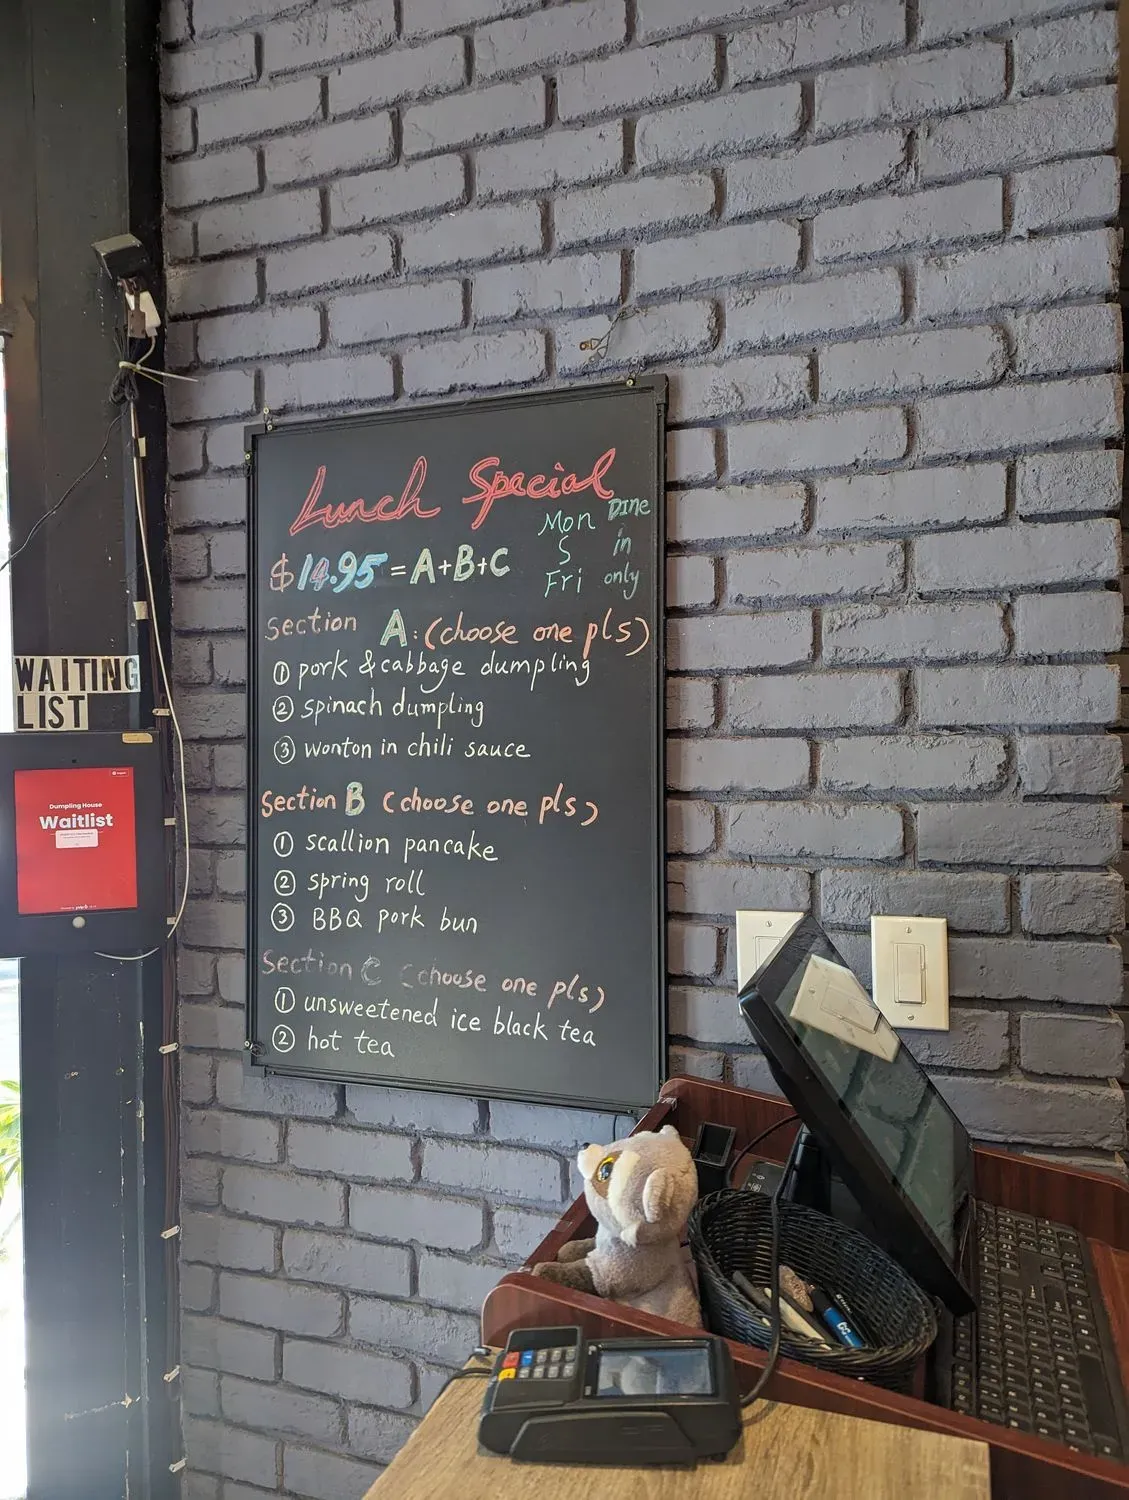 Lunch Special
$14.95 = A+B+C
Mon
S
Fri
Dine
in
only
Section A: (choose one pls)
① pork & cabbage dumpling
② spinach dumpling
③ wonton in chili sauce
Section B (choose one pls)
① scallion pancake
② spring roll
③ BBQ pork bun
Section C (choose one pls)
① unsweetened ice black tea
② hot tea
WAITING
LIST
Dumpling House
Waitlist